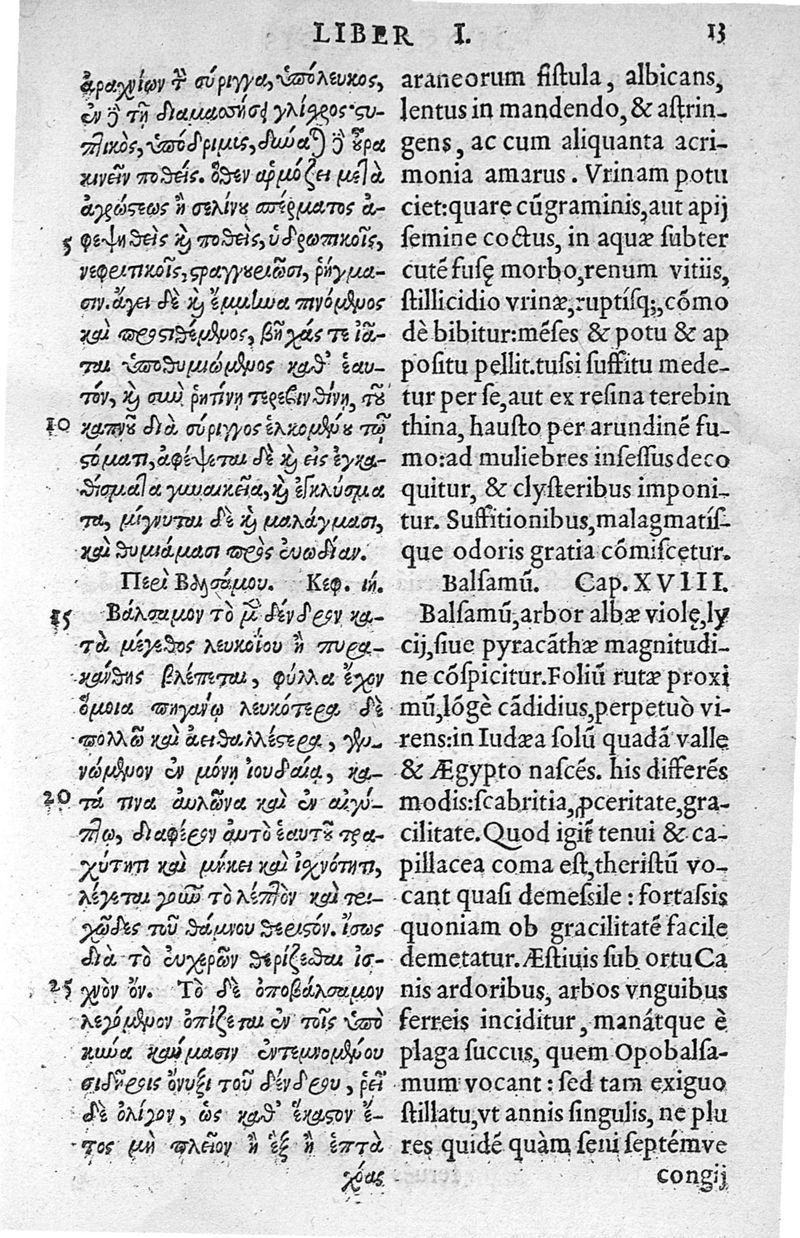 LIBER I. 13
ἀραχνίων τῇ σύριγγα, ὑπόλευκος,
ἐν δὲ τῇ διαμασήσει γλίσχρος· στυ-
πτικὸς, ὑπόδριμυς, δύναται δὲ οὖρα
κινεῖν ποθείς. ὅθεν ἁρμόζει μετὰ
ἀγρώστεως ἢ σελίνου σπέρματος ἀ-
5 φεψηθεὶς καὶ ποθεὶς, ὑδρωπικοῖς,
νεφριτικοῖς, στραγγουριῶσι, ῥήγμα-
σιν. ἄγει δὲ καὶ ἔμμηνα πινόμενος
καὶ προστιθέμενος, βῆχάς τε ἰᾶ-
ται ὑποθυμιώμενος καθ' ἑαυ-
τόν, καὶ σὺν ῥητίνῃ τερεβινθίνῃ, τοῦ
10 καπνοῦ διὰ σύριγγος ἑλκομένου τῷ
στόματι, ἀφέψεται δὲ καὶ εἰς ἐγκα-
θίσματα γυναικεῖα, καὶ ἐγκλύσμα
τα, μίγνυται δὲ καὶ μαλάγμασι,
καὶ θυμιάμασι πρὸς εὐωδίαν.
Περὶ Βαλσάμου. Κεφ. ιή.
15 Βάλσαμον τὸ μὲν δένδρον κα-
τὰ μέγεθος λευκοΐου ἢ πυρα-
κάνθης βλέπεται, φύλλα ἔχον
ὅμοια πηγάνῳ λευκότερα δὲ
πολλῷ καὶ ἀειθαλλέστερα, γεν-
νώμενον ἐν μόνῃ ἰουδαίᾳ, κα-
20 τά τινα αὐλῶνα καὶ ἐν αἰγύ-
πτῳ, διαφέρον αὐτὸ ἑαυτοῦ τρα-
χύτητι καὶ μήκει καὶ ἰσχνότητι,
λέγεται γοῦν τὸ λεπτὸν καὶ τρι-
χῶδες τοῦ θάμνου θεριστόν. ἴσως
διὰ τὸ εὐχερῶν θερίζεσθαι ἰσ-
25 χνὸν ὄν. Τὸ δὲ ὀποβάλσαμον
λεγόμενον ὀπίζεται ἐν τοῖς ὑπὸ
κύνα καύμασιν ἐντεμνομένου
σιδηροῖς ὄνυξι τοῦ δένδρου, ῥεῖ
δὲ ὀλίγον, ὡς καθ' ἕκαστον ἔ-
τος μὴ πλεῖον ἢ ἓξ ἢ ἑπτὰ
χόας
araneorum fistula, albicans,
lentus in mandendo, & astrin-
gens, ac cum aliquanta acri-
monia amarus. Vrinam potu
ciet: quare cũ graminis, aut apij
semine coctus, in aquæ subter
cutẽ fusę morbo, renum vitiis,
stillicidio vrinæ, ruptisq;, cõmo
dè bibitur: mẽses & potu & ap
positu pellit. tussi suffitu mede-
tur per se, aut ex resina terebin
thina, hausto per arundinẽ fu-
mo: ad muliebres insessus deco
quitur, & clysteribus imponi-
tur. Suffitionibus, malagmatis-
que odoris gratia cõmiscetur.
Balsamũ. Cap. XVIII.
Balsamũ, arbor albæ violę, ly
cij, siue pyracãthæ magnitudi-
ne cõspicitur. Foliũ rutæ proxi
mũ, lõgè cãdidius, perpetuò vi-
rens: in Iudæa solũ quadã valle
& Ægypto nascẽs. his differẽs
modis: scabritia, ꝓceritate, gra-
cilitate. Quod igit̃ tenui & ca-
pillacea coma est, theristũ vo-
cant quasi demessile: fortassis
quoniam ob gracilitatẽ facile
demetatur. Æstiuis sub ortu Ca
nis ardoribus, arbos vnguibus
ferreis inciditur, manátque è
plaga succus, quem Opobalsa-
mum vocant: sed tam exiguo
stillatu, vt annis singulis, ne plu
res quidẽ quàm seni septẽmve
congij